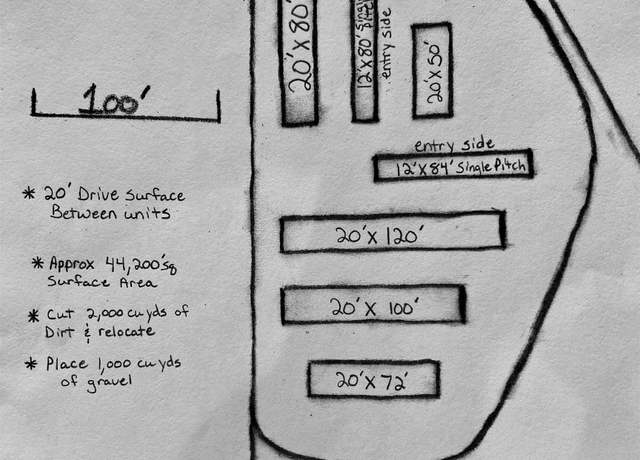 20'X80'
12'X80' Single Pitch
entry side
20'X50'
100'
entry side
12'X84' Single Pitch
* 20' Drive Surface
Between units
20'X 120'
* Approx 44,200'sq
Surface Area
* Cut 2,000 cuyds of
Dirt & relocate
20'X 100'
* Place 1,000 cuyds
of gravel
20'X72'